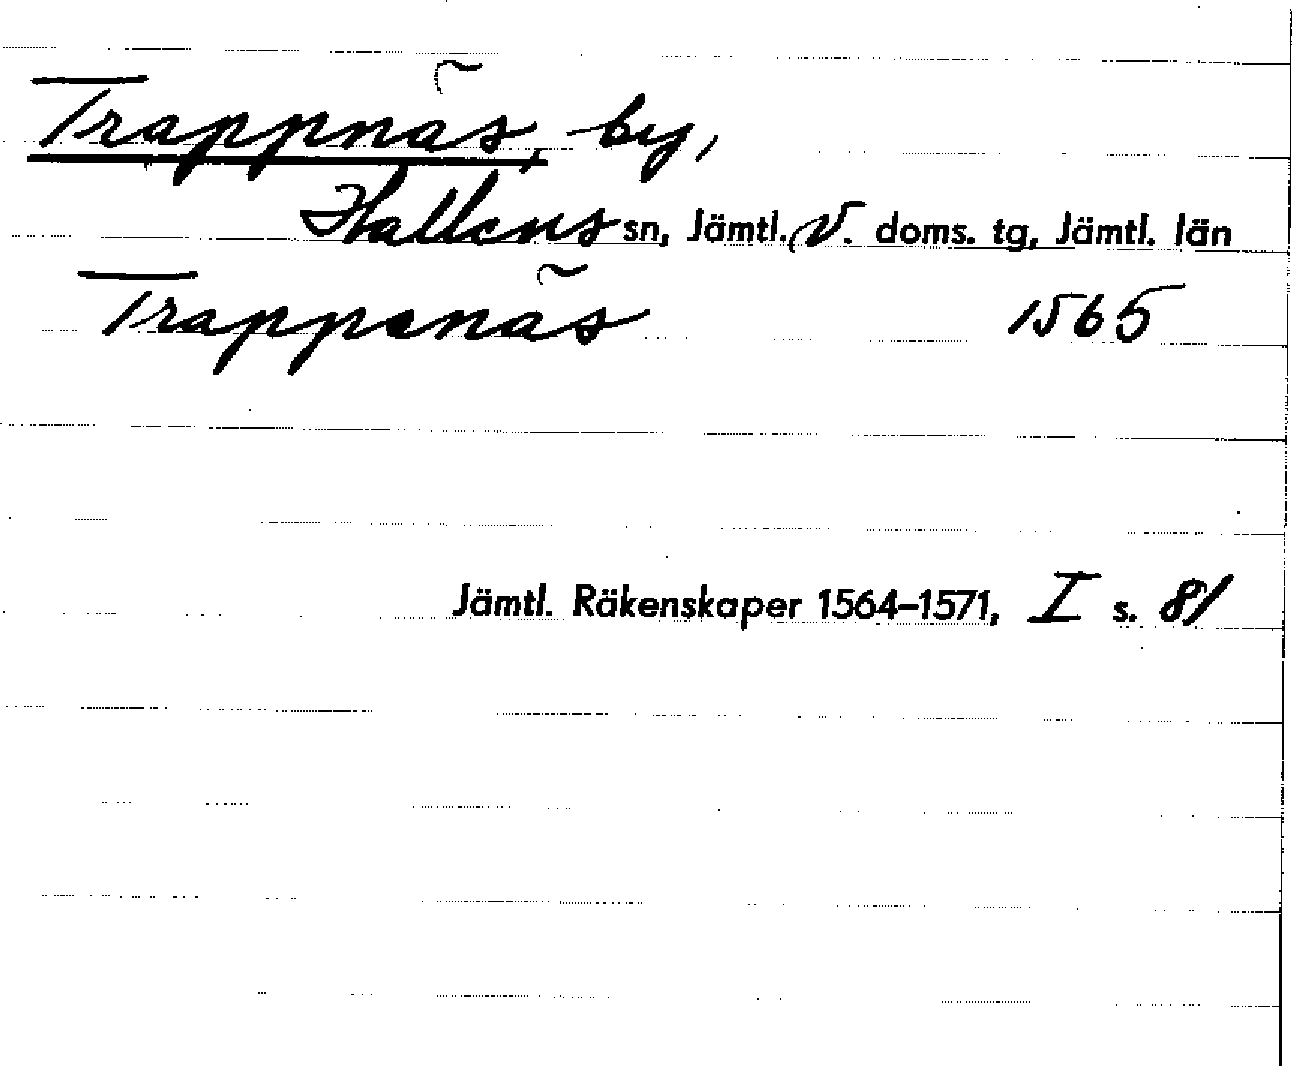 Trappnäs, by,
Hallens sn, Jämtl. V. doms. tg, Jämtl. län
Trappenäs 1565
Jämtl. Räkenskaper 1564–1571, I s. 81